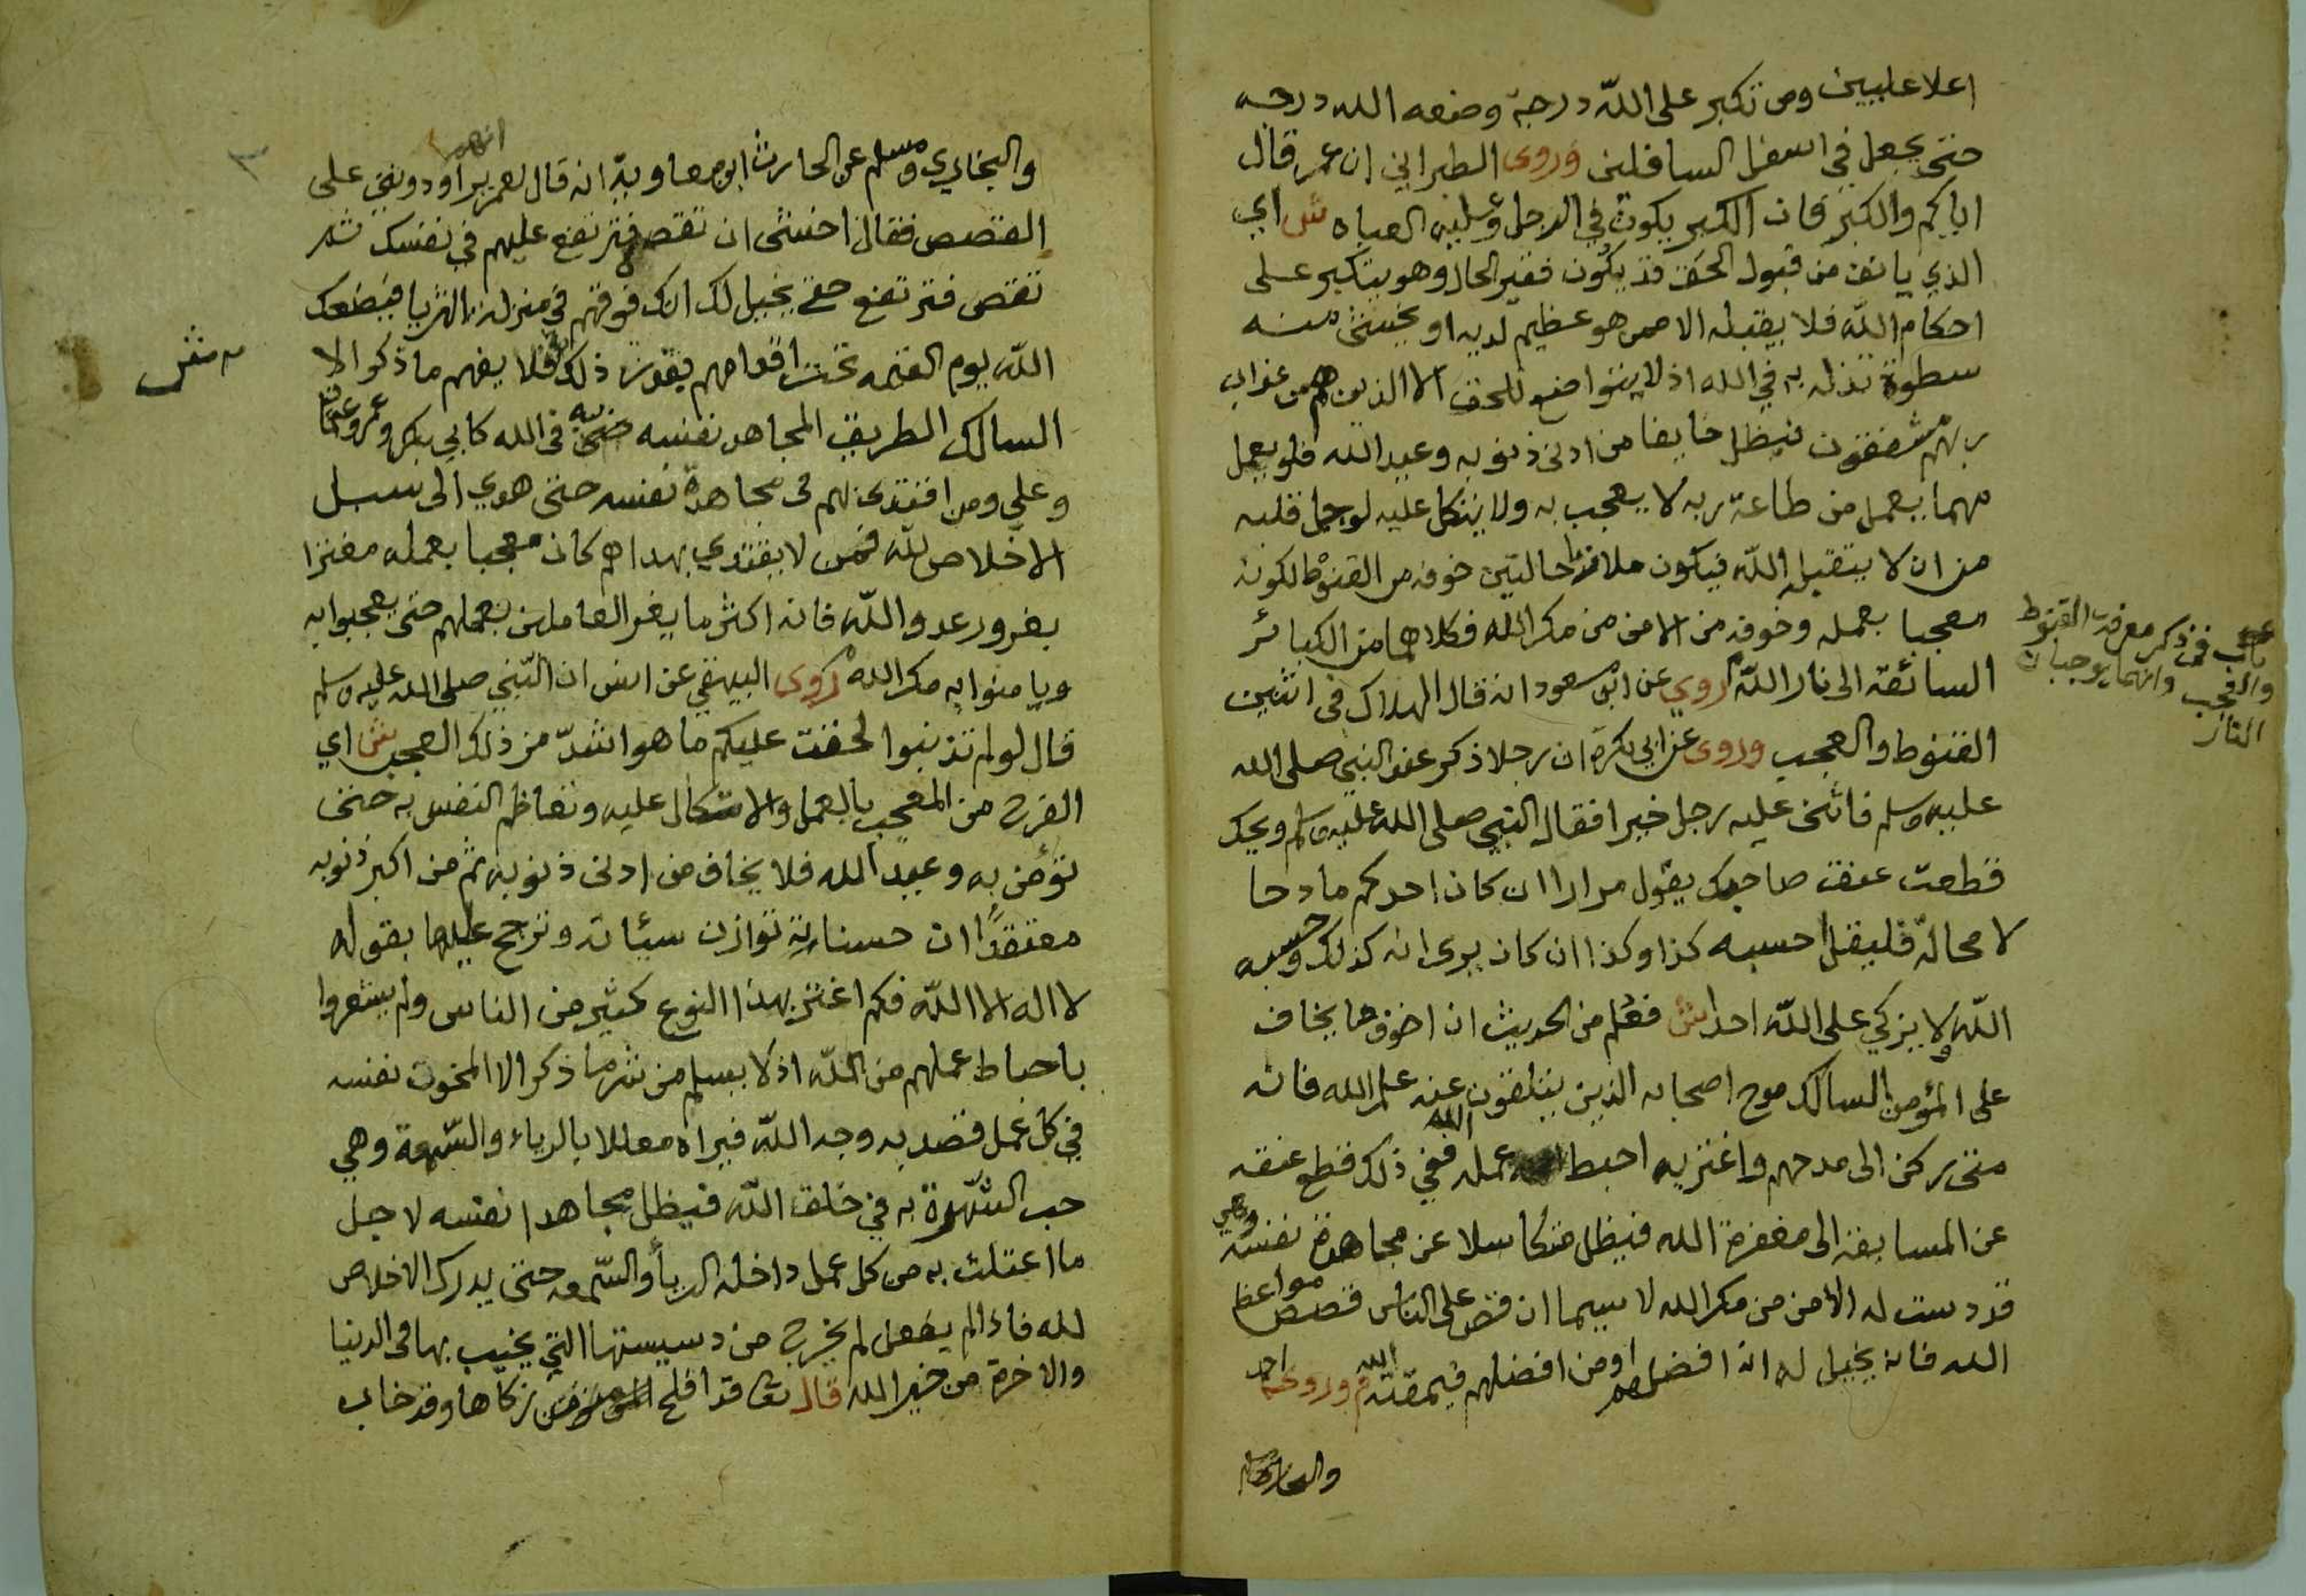 اعلا عليين ومن تكبر على الله درجة وضعه الله درجه
حتى يجعل في اسفل السافلين وروى الطبراني ان عمر قال
اياكم والكبر فان الكبر يكون في الرجل وعليه العباه ش اي
الذي يانف من قبول الحق قد يكون فقير الحال وهو يتكبر على
احكام الله فلا يقبله الا ممن هو عظيم لديه او يخشى منه
سطوة تنزله به في الله اذ لا يتواضع للحق الا الذين هم من عذاب
ربهم مشفقون فيظل خايفا من ادنى ذنوبه وعيد الله فلو يعمل
مهما يعمل من طاعة ربه لا يعجب به ولا يتكل عليه لوجل قلبه
من ان لا يتقبل الله فيكون ملازما حالتين خوفه من القنوط لكونه
معجبا بعمله وخوفه من الامن من مكر الله فكلاهما من الكبائر
السائقة الى نار الله روي عن ابن مسعود انه قال الهلاك في اثنين
القنوط والعجب وروى عن ابي بكرة ان رجلا ذكر عند النبي صلى الله
عليه وسلم فاثنى عليه رجل خيرا فقال النبي صلى الله عليه وسلم ويحك
قطعت عنق صاحبك يقول مرارا ان كان احدكم مادحا
لا محالة فليقل احسبه كذا وكذا ان كان يرى انه كذلك وحسيبه
الله ولا يزكي على الله احدا ش فعلم من الحديث ان اخوف ما يخاف
على المؤمن السالك مدح اصحابه الذين يتلقون عنه علم الله فانه
متى ركن الى مدحهم واغتر به احبط الله عمله ففي ذلك قطع عنقه
عن المسابقة الى مغفرة الله فيظل متكاسلا عن مجاهدة نفسه وهي
قد دست له الامن من مكر الله لا سيما ان قص على الناس قصص مواعظ
الله فانه يخيل له انه افضلهم او من افضلهم فيمقته الله وروى احمد
والبخاري ومسلم
باب في ذكر معرفة القنوط
والعجب وانهما يوجبان
النار
والبخاري ومسلم عن الحارث ابن معاوية انه قال لعمر انهم يراودونني على
القصص فقال اخشى ان تقص فترتفع عليهم في نفسك ثم
تقص فترتفع حتى يخيل لك انك فوقهم في منزلة الثريا فيضعك
الله يوم القيمة تحت اقدامهم بقدر ذلك ش فلا يفهم ما ذكر الا
السالك الطريق المجاهد نفسه في الله كابي بكر وعمر وعثمان
وعلي ومن اقتدى بهم في مجاهدة نفسه حتى هدي الى سبل
الاخلاص لله فمن لا يقتدي بهداهم كان معجبا بعمله مغترا
بغرور عدو الله فانه اكثر ما يغر العاملين بعملهم حتى يعجبوا به
ويامنوا به مكر الله روى البيهقي عن انس ان النبي صلى الله عليه وسلم
قال لو لم تذنبوا لخفت عليكم ما هو اشد من ذلك العجب ش اي
الفرح من المعجب بالعمل والاتكال عليه وتعاظم النفس به حتى
تؤمن به وعيد الله فلا يخاف من ادنى ذنوبه ثم من اكبر ذنوبه
معتقدا ان حسناته توازن سيئاته وترجح عليها بقوله
لا اله الا الله فكم اغتر بهذا النوع كثير من الناس ولم يشعروا
باحباط عملهم من الله اذ لا يسلم من شر ما ذكر الا المخون نفسه
في كل عمل قصد به وجه الله فيراه معللا بالرياء والسمعة وهي
حب الشهرة به في خلق الله فيظل مجاهدا نفسه لاجل
ما اعتلت به من كل عمل داخله الريا والسمعة حتى يدرك الاخلاص
لله فاذا لم يفعل لم يخرج من دسيستها التي يخيب بها في الدنيا
والاخرة من خير الله قال تعا قد افلح من زكاها وقد خاب